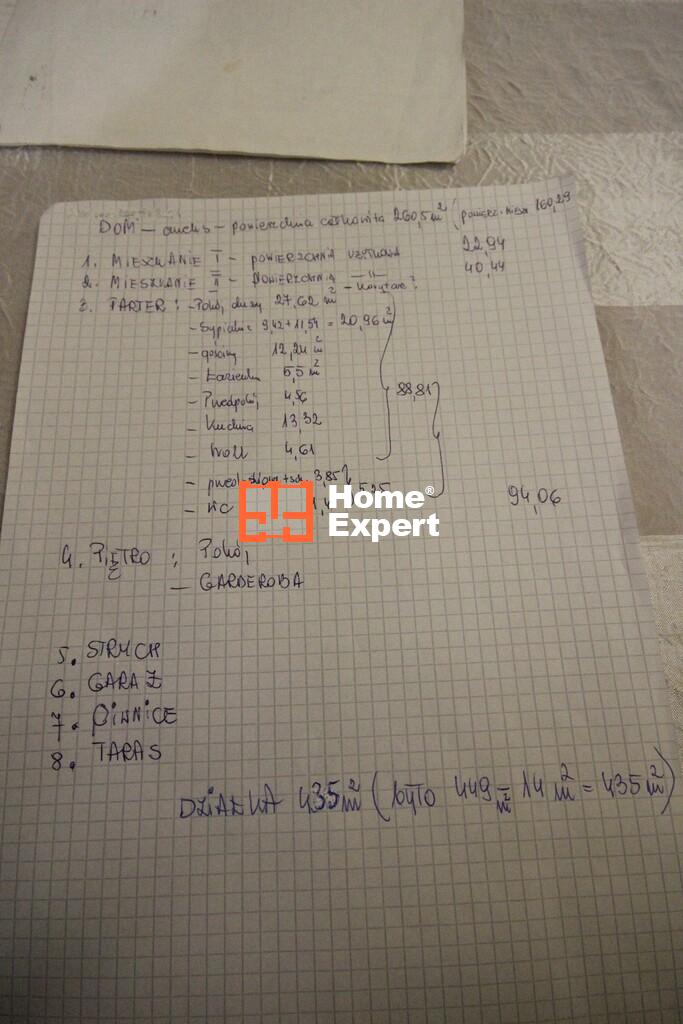 DOM - powierzchnia całkowita 260,5 m² (powierz. miesz 160,29
1. MIESZKANIE I - POWIERZCHNIA UŻYTKOWA 22,94
2. MIESZKANIE II - POWIERZCHNIA —"— 40,44
3. PARTER: - Pokój duży 27,62 m² - Korytarz?
- Sypialnia 9,42 + 11,54 = 20,96 m²
- gościnny 12,24 m²
- Łazienka 5,5 m²
- Przedpokój 4,56
- Kuchnia 13,32
- Holl 4,61
88,81
- przed 3,85
- WC 1,4 5,25
94,06
Home® Expert
4. PIĘTRO: Pokój
- GARDEROBA
5. STRYCH
6. GARAŻ
7. PIWNICE
8. TARAS
DZIAŁKA 435 m² (było 449 m² - 14 m² = 435 m²)